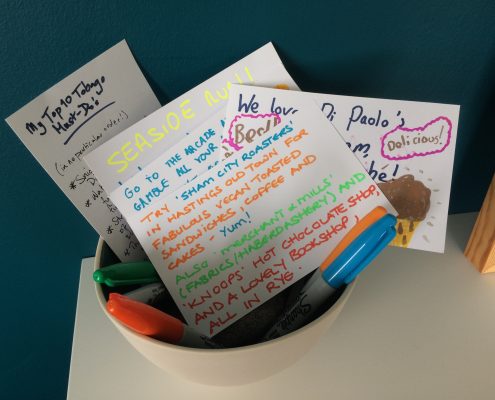 My Top 10 Tobago
Must-Do's
(in no particular order!)
SEASIDE RUN!!
GO TO THE ARCADE
GAMBLE ALL YOUR
We love Di Paolo's
Delicious!
TRY 'SHAM CITY ROASTERS'
IN HASTINGS OLD TOWN FOR
FABULOUS VEGAN TOASTED
SANDWICHES, COFFEE AND
CAKES - Yum!
ALSO 'MERCHANT & MILLS'
(FABRICS/HABERDASHERY) AND
'KNOOPS' HOT CHOCOLATE SHOP,
AND A LOVELY BOOKSHOP,
ALL IN RYE.
Sharpie